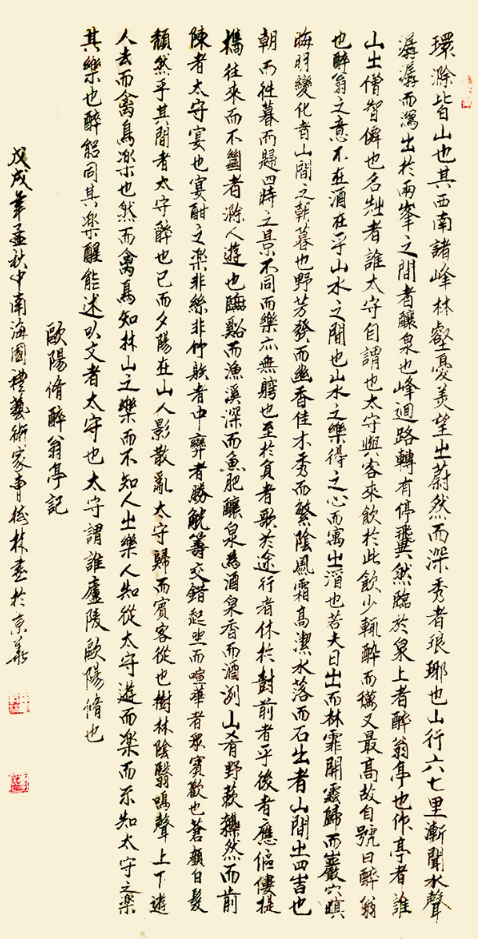 環滁皆山也其西南諸峰林壑憂美望之蔚然而深秀者琅琊也山行六七里漸聞水聲
潺潺而瀉出於兩峯之間者釀泉也峰迴路轉有亭翼然臨於泉上者醉翁亭也作亭者誰
山之僧智僊也名之者誰太守自謂也太守與客來飲於此飲少輒醉而穊又最高故自號曰醉翁
也醉翁之意不在酒在乎山水之間也山水之樂得之心而寓之酒也若夫日出而林霏開雲歸而巖穴暝
晦明變化者山間之朝暮也野芳發而幽香佳木秀而繁陰風霜高潔水落而石出者山間之四時也
朝而往暮而歸四時之景不同而樂亦無窮也至於負者歌於途行者休於樹前者乎後者應傴僂提
攜往來而不絕者滁人遊也臨谿而漁溪深而魚肥釀泉為酒泉香而酒冽山肴野蔌雜然而前
陳者太守宴也宴酣之樂非絲非竹射者中弈者勝觥籌交錯起坐而喧譁者眾賓歡也蒼顏白髮
頹然乎其間者太守醉也已而夕陽在山人影散亂太守歸而賓客從也樹林陰翳鳴聲上下遊
人去而禽鳥樂也然而禽鳥知林山之樂而不知人之樂人知從太守遊而樂而不知太守之樂
其樂也醉能同其樂醒能述以文者太守也太守謂誰廬陵歐陽脩也
歐陽脩醉翁亭記
戊戌年孟秋中南海國禮藝術家曹桂林書於京華